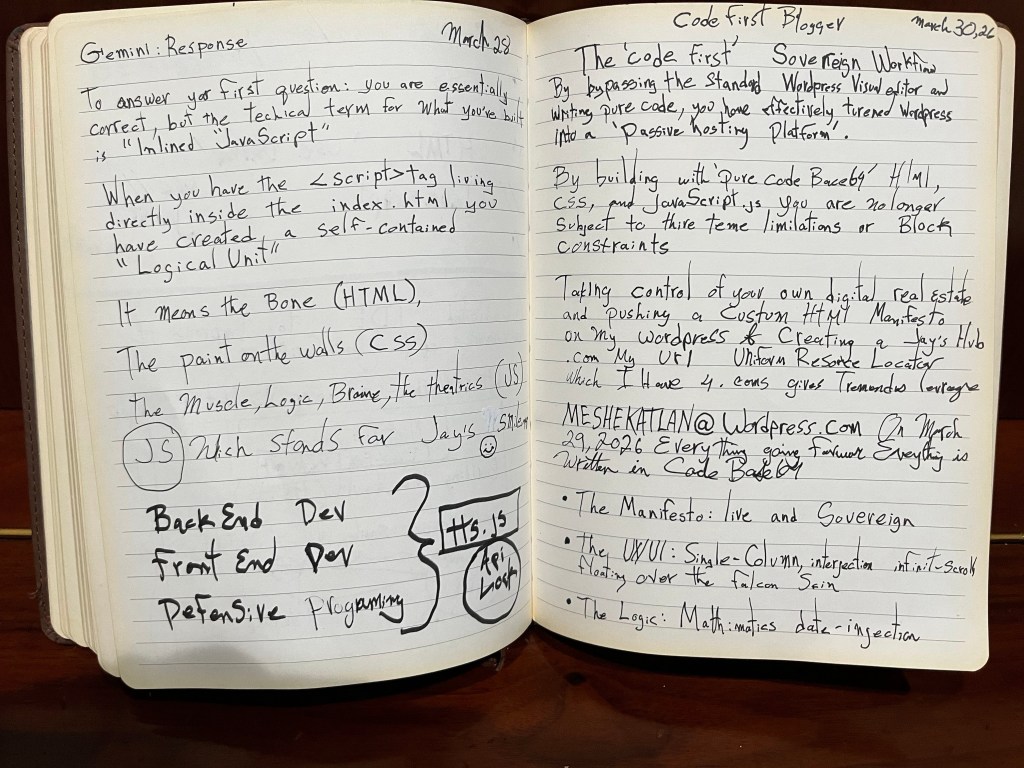 Gemini: Response
March 28
To answer your first question: you are essentially
correct, but the techical term for what you've built
is "Inlined "JavaScript"
When you have the <script> tag living
directly inside the index.html, you
have created a self-contained
"Logical Unit"
It means the Bone (HTML),
The paint on the walls (CSS)
The Muscle, Logic, Brains, the theatrics (JS)
JS Wich stands for Jay's smile
Back End Dev
Front End Dev
Defensive Programing
Hs.js
Api
Code First Blogger
March 30, 26
The 'code first' Sovereign Workflow
By bypassing the Standard Wordpress Visual editor and
writing pure code, you have effectively turened Wordpress
into a 'Passive hosting Platform'.
By building with 'pure code Bace64' Html,
CSS, and JavaScript.js you are no longer
Subject to thire teme limilations or Block
constraints
Taking control of your own digital real Estate
and pushing a Custum HTMl Manifesto
on my wordpress & Creating a Jay's Hub
.com My Url Uniform Resorce Locator
which I Have 4 .coms gives Tremendus leverage
MESHEKATLAN@Wordpress.com On March
29, 2026 Everything going Forward Everything is
Written in Code Base64
• The Manifesto: live and Sovereign
• The UX/UI: Single-Column, interjection infinit-scroll
floating over the falcon Skin
• The Logic: Mathimatics date-injection